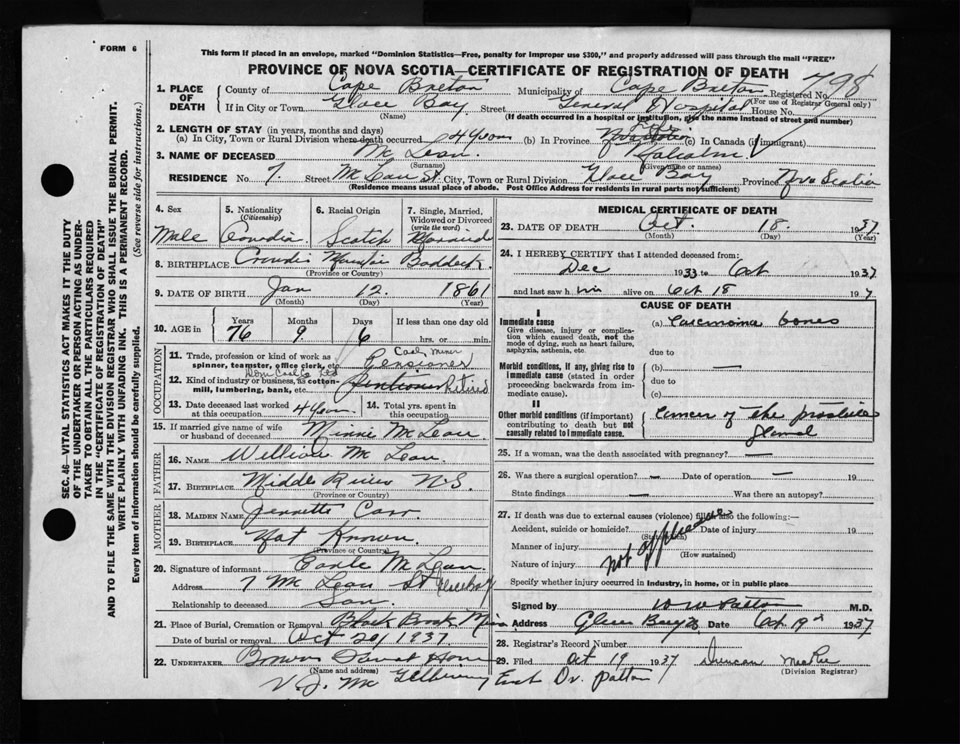 FORM 6
This form if placed in an envelope, marked "Dominion Statistics—Free, penalty for improper use $300," and properly addressed will pass through the mail "FREE"
PROVINCE OF NOVA SCOTIA—CERTIFICATE OF REGISTRATION OF DEATH
798
1. PLACE OF DEATH
County of Cape Breton Municipality of Cape Breton Registered No. (For use of Registrar General only)
If in City or Town Glace Bay Street General Hospital House No.
(Name) (If death occurred in a hospital or institution, give the name instead of street and number)
2. LENGTH OF STAY (in years, months and days)
(a) In City, Town or Rural Division where death occurred (b) In Province (c) In Canada (if immigrant)
3. NAME OF DECEASED Mc Lean.
(Surname) (Given name or names)
RESIDENCE No. 7. Street St. City, Town or Rural Division Glace Bay Province Nova Scotia
(Residence means usual place of abode. Post Office Address for residents in rural parts not sufficient)
4. Sex
Male
5. Nationality (Citizenship)
6. Racial Origin
Scotch
7. Single, Married, Widowed or Divorced (write the word)
8. BIRTHPLACE Baddeck
(Province or Country)
9. DATE OF BIRTH Jan 12. 1861
(Month) (Day) (Year)
10. AGE in Years Months Days If less than one day old
76 9 6 hrs. or min.
OCCUPATION
11. Trade, profession or kind of work as spinner, teamster, office clerk, etc. Coal Miner Pensioner
12. Kind of industry or business, as cotton-mill, lumbering, bank, etc. Retired
13. Date deceased last worked at this occupation
14. Total yrs. spent in this occupation
15. If married give name of wife or husband of deceased Minnie Mc Lean
FATHER
16. NAME William Mc Lean.
17. BIRTHPLACE Middle River N.S.
(Province or Country)
MOTHER
18. MAIDEN NAME Jennette Carr.
19. BIRTHPLACE Not Known.
(Province or Country)
20. Signature of informant Mc Lean.
Address 7 Mc Lean St
Relationship to deceased Son.
21. Place of Burial, Cremation or Removal Black Brook Mira
Date of burial or removal Oct 20/1937
22. UNDERTAKER
(Name and address)
V.J. Mc
MEDICAL CERTIFICATE OF DEATH
23. DATE OF DEATH Oct. 18. 1937
(Month) (Day) (Year)
24. I HEREBY CERTIFY that I attended deceased from:
Dec 1933 to Oct 1937
and last saw him alive on Oct 18 197
CAUSE OF DEATH
I
Immediate cause
Give disease, injury or complication which caused death, not the mode of dying, such as heart failure, asphyxia, asthenia, etc.
(a) Carcinoma bones
due to
Morbid conditions, if any, giving rise to immediate cause (stated in order proceeding backwards from immediate cause).
(b) —
due to
(c)
II
Other morbid conditions (if important) contributing to death but not causally related to immediate cause.
Cancer of the prostate
gland
25. If a woman, was the death associated with pregnancy? —
26. Was there a surgical operation? — Date of operation — 19
State findings Was there an autopsy?
27. If death was due to external causes (violence) fill in also the following:—
Accident, suicide or homicide? Date of injury 19
(State which)
Manner of injury
(How sustained)
Nature of injury
not applicable
Specify whether injury occurred in industry, in home, or in public place
Signed by W W Patton M.D.
Address Glace Bay Date Oct 19 1937
28. Registrar's Record Number
29. Filed Oct 19 1937 Duncan
(Division Registrar)
Dr. Patton
SEC. 46—VITAL STATISTICS ACT MAKES IT THE DUTY
OF THE UNDERTAKER OR PERSON ACTING AS UNDER-
TAKER TO OBTAIN ALL THE PARTICULARS REQUIRED
IN THE "CERTIFICATE OF REGISTRATION OF DEATH"
AND TO FILE THE SAME WITH THE DIVISION REGISTRAR WHO SHALL ISSUE THE BURIAL PERMIT.
WRITE PLAINLY WITH UNFADING INK. THIS IS A PERMANENT RECORD.
Every item of information should be carefully supplied. (See reverse side for instructions.)